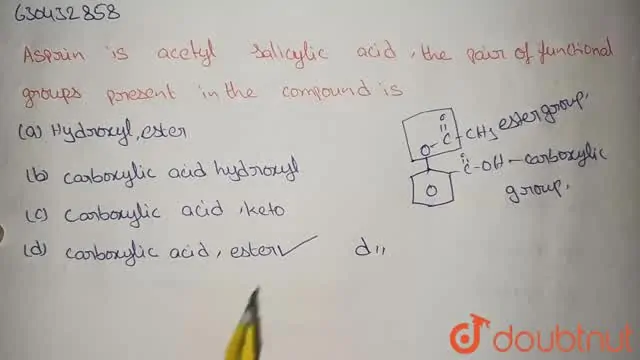 630432858
Asprin is acetyl salicylic acid, the pair of functional
groups present in the compound is
(a) Hydroxyl, ester
(b) carboxylic acid hydroxyl
(c) Carboxylic acid, keto
(d) carboxylic acid, ester✓
d,,
O
O-C-CH3 ester group.
O
C-OH-carboxylic
group.
O
doubtnut